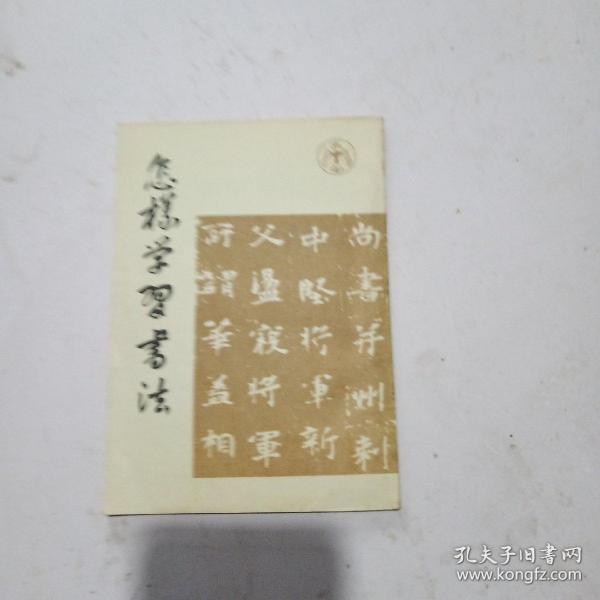 怎样学习书法
尚書并州刺
中堅将軍新
父盪寇将軍
所謂華蓋相
孔夫子旧书网
www.kongfz.com